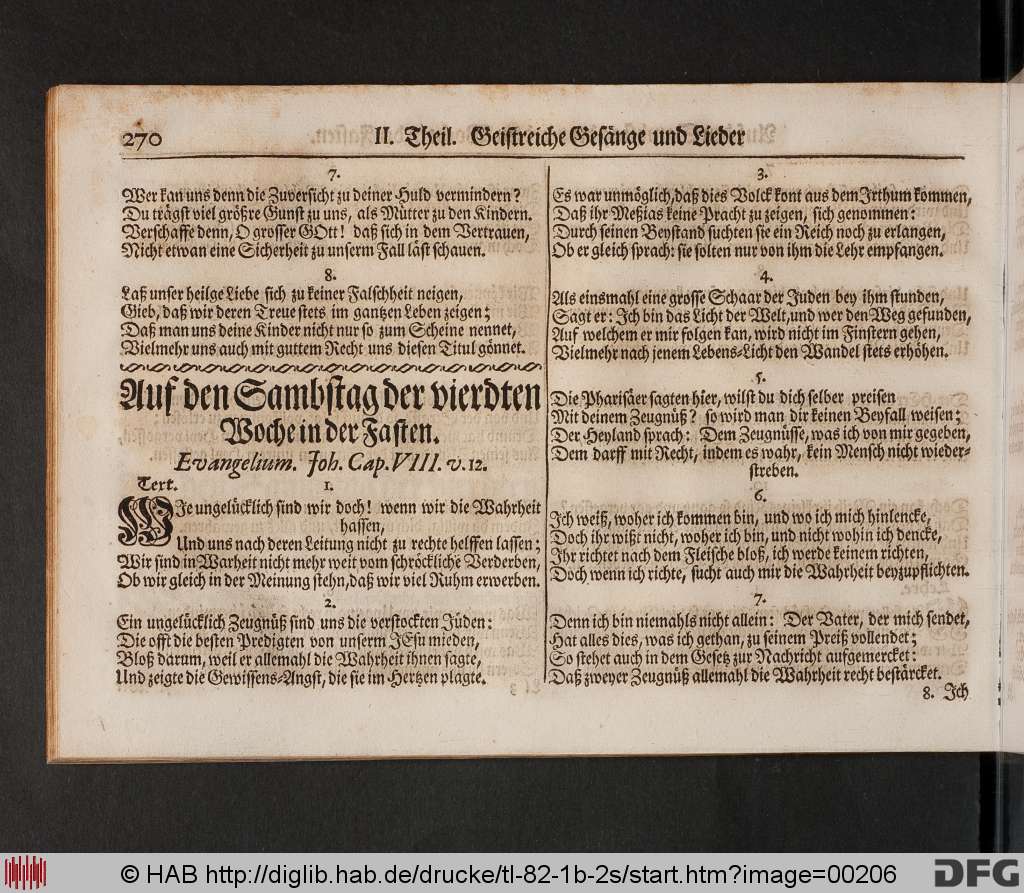 270
II. Theil. Geistreiche Gesänge und Lieder
7.
Wer kan uns denn die Zuversicht zu deiner Huld vermindern?
Du trägst viel größre Gunst zu uns, als Mütter zu den Kindern.
Verschaffe denn, O grosser GOtt! daß sich in dem Vertrauen,
Nicht etwan eine Sicherheit zu unserm Fall läst schauen.
8.
Laß unser heilge Liebe sich zu keiner Falschheit neigen,
Gieb, daß wir deren Treue stets im gantzen Leben zeigen;
Daß man uns deine Kinder nicht nur so zum Scheine nennet,
Vielmehr uns auch mit guttem Recht uns diesen Titul gönnet.
Auf den Sambstag der vierdten
Woche in der Fasten.
Evangelium. Joh. Cap. VIII. v. 12.
Text.
1.
WIe ungelücklich sind wir doch! wenn wir die Wahrheit
hassen,
Und uns nach deren Leitung nicht zu rechte helffen lassen;
Wir sind in Warheit nicht mehr weit vom schröckliche Verderben,
Ob wir gleich in der Meinung stehn, daß wir viel Ruhm erwerben.
2.
Ein ungelücklich Zeugnüß sind uns die verstockten Jüden:
Die offt die besten Predigten von unserm JEsu mieden,
Bloß darum, weil er allemahl die Wahrheit ihnen sagte,
Und zeigte die Gewissens-Angst, die sie im Hertzen plagte.
3.
Es war unmöglich, daß dies Volck kont aus dem Irthum kommen,
Daß ihr Meßias keine Pracht zu zeigen, sich genommen:
Durch seinen Beystand suchten sie ein Reich noch zu erlangen,
Ob er gleich sprach: sie solten nur von ihm die Lehr empfangen.
4.
Als einsmahl eine grosse Schaar der Juden bey ihm stunden,
Sagt er: Ich bin das Licht der Welt, und wer den Weg gefunden,
Auf welchem er mir folgen kan, wird nicht im Finstern gehen,
Vielmehr nach jenem Lebens-Licht den Wandel stets erhöhen.
5.
Die Pharisäer sagten hier, wilst du dich selber preisen
Mit deinem Zeugnüß? so wird man dir keinen Beyfall weisen;
Der Heyland sprach: Dem Zeugnüsse, was ich von mir gegeben,
Dem darff mit Recht, indem es wahr, kein Mensch nicht wieder-
streben.
6.
Ich weiß, woher ich kommen bin, und wo ich mich hinlencke,
Doch ihr wißt nicht, woher ich bin, und nicht wohin ich dencke,
Ihr richtet nach dem Fleische bloß, ich werde keinem richten,
Doch wenn ich richte, sucht auch mir die Wahrheit beyzupflichten.
7.
Denn ich bin niemahls nicht allein: Der Vater, der mich sendet,
Hat alles dies, was ich gethan, zu seinem Preiß vollendet;
So stehet auch in dem Gesetz zur Nachricht aufgemercket:
Daß zweyer Zeugnüß allemahl die Wahrheit recht bestärcket.
8. Ich
© HAB http://diglib.hab.de/drucke/tl-82-1b-2s/start.htm?image=00206
DFG